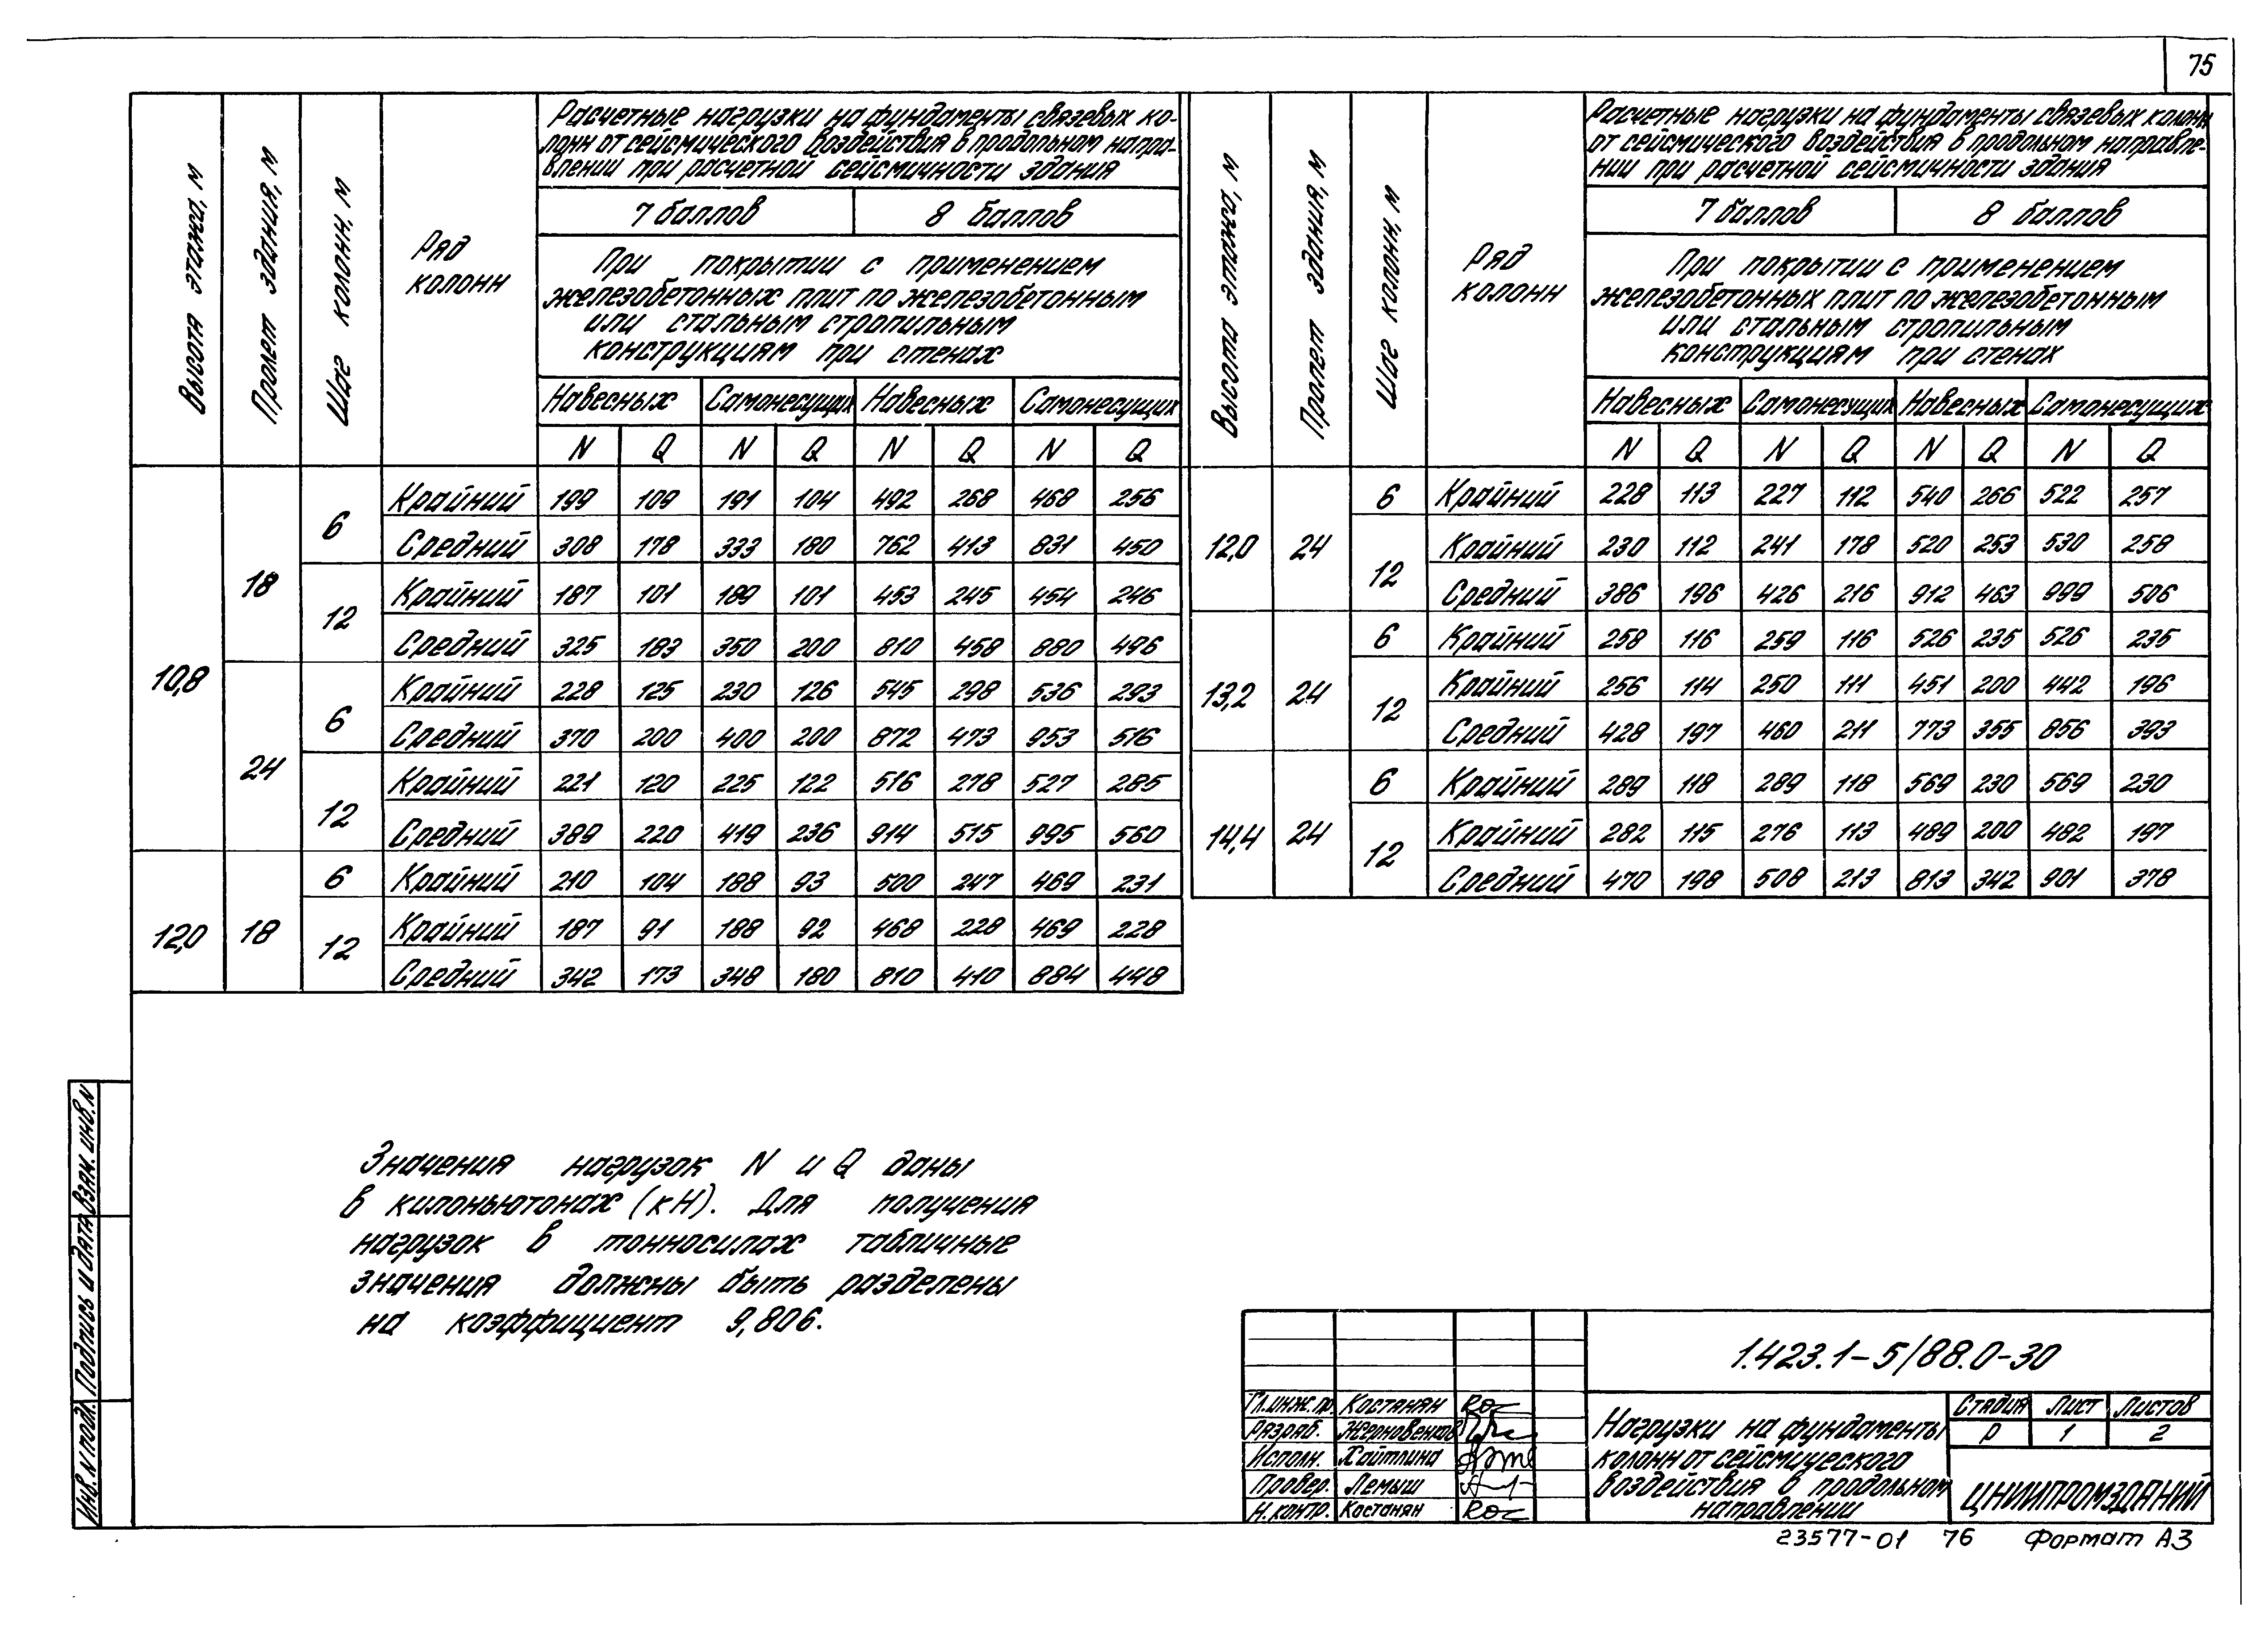 75
Высота этажа, м
Пролет здания, м
Шаг колонн, м
Ряд
колонн
Расчетные нагрузки на фундаменты связевых ко-
лонн от сейсмического воздействия в продольном напра-
влении при расчетной сейсмичности здания
7 баллов 8 баллов
При покрытии с применением
железобетонных плит по железобетонным
или стальным стропильным
конструкциям при стенах
Навесных Самонесущих Навесных Самонесущих
N Q N Q N Q N Q
10,8 18 6 Крайний 199 109 191 104 492 268 468 256
Средний 308 178 333 180 762 413 831 450
12 Крайний 187 101 189 101 453 245 454 246
Средний 325 183 350 200 810 458 880 496
24 6 Крайний 228 125 230 126 545 298 536 293
Средний 370 200 400 200 872 473 953 516
12 Крайний 221 120 225 122 516 278 527 285
Средний 389 220 419 236 914 515 995 560
12,0 18 6 Крайний 210 104 188 93 500 247 469 231
12 Крайний 187 91 188 92 468 228 469 228
Средний 342 173 348 180 810 410 884 448
Высота этажа, м
Пролет здания, м
Шаг колонн, м
Ряд
колонн
Расчетные нагрузки на фундаменты связевых колонн
от сейсмического воздействия в продольном направле-
нии при расчетной сейсмичности здания
7 баллов 8 баллов
При покрытии с применением
железобетонных плит по железобетонным
или стальным стропильным
конструкциям при стенах
Навесных Самонесущих Навесных Самонесущих
N Q N Q N Q N Q
12,0 24 6 Крайний 228 113 227 112 540 266 522 257
12 Крайний 230 112 241 178 520 253 530 258
Средний 386 196 426 216 912 463 999 506
13,2 24 6 Крайний 258 116 259 116 526 235 526 235
12 Крайний 256 114 250 111 451 200 442 196
Средний 428 197 460 211 773 355 856 393
14,4 24 6 Крайний 289 118 289 118 569 230 569 230
12 Крайний 282 115 276 113 489 200 482 197
Средний 470 198 508 213 813 342 901 378
Значения нагрузок N и Q даны
в килоньютонах (кН). Для получения
нагрузок в тонносилах табличные
значения должны быть разделены
на коэффициент 9,806.
Инв. N подл. Подпись и дата Взам. инв. N
1.423.1-5/88.0-30
Гл. инж. пр. Костанян
Разраб. Жерновенков
Исполн. Хайтлина
Провер. Лемыш
Н. контр. Костанян
Нагрузки на фундаменты
колонн от сейсмического
воздействия в продольном
направлении
Стадия Лист Листов
Р 1 2
ЦНИИПРОМЗДАНИЙ
23577-01 76 Формат А3